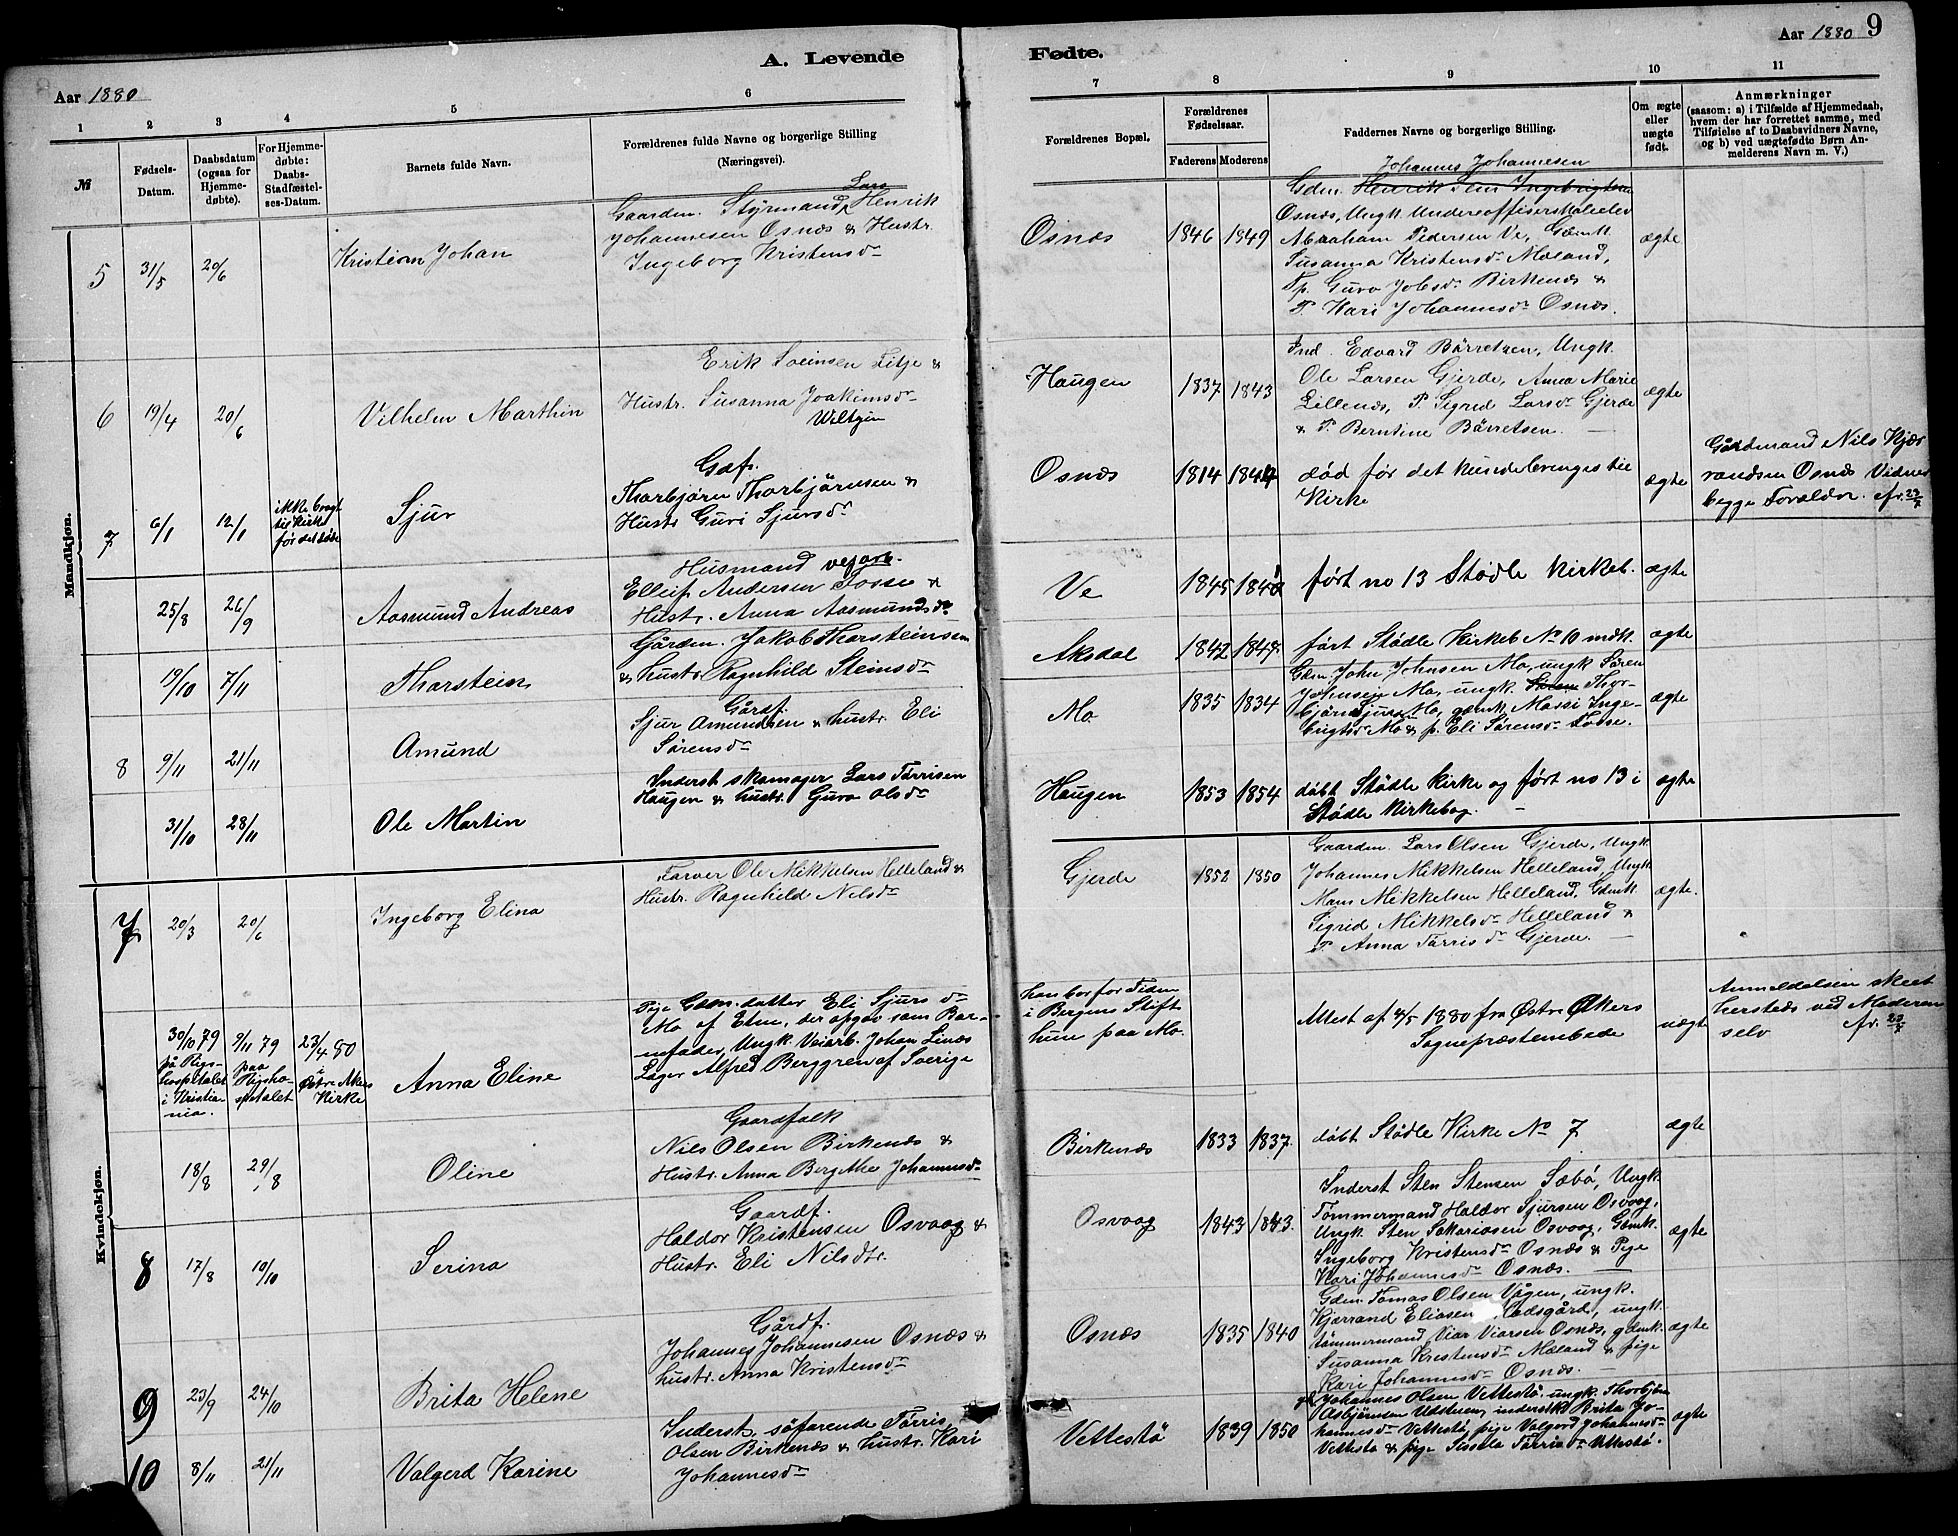 Aar 1880
A. Levende
Fødte.
Aar 1880
9
1
2
3
4
5
6
7
8
9
10
11
№
Fødsels-
Datum.
Daabsdatum
(ogsaa for
Hjemme-
døbte).
For Hjemme-
døbte:
Daabs-
Stadfæstel-
ses-Datum.
Barnets fulde Navn.
Forældrenes fulde Navne og borgerlige Stilling
(Næringsvei).
Forældrenes Bopæl.
Forældrenes
Fødselsaar.
Faderens
Moderens
Faddernes Navne og borgerlige Stilling.
Om ægte
eller
uægte
født.
Anmærkninger
(saasom: a) i Tilfælde af Hjemmedaab,
hvem der har forrettet samme, med
Tilføielse af to Daabsvidners Navne,
og b) ved uægtefødte Børn An-
melderens Navn m. V.)
Mandkjøn.
5
31/5
20/6
Kristian Johan
Lars
Gaardm. Styrmand Henrik
Johannesen Osnæs & Hustr.
Ingeborg Kristensdr
Osnæs
1846
1849
Johannes Johannesen
Gdm. Henrik Ingebrigtsen
Osnæs, Ungk. Underoffiserskolelev
Abraham Pedersen Ve, Gdmk.
Susanna Kristensdr Mæland,
Tp. Guro Jobsdr Birkenæs &
P. Kari Johannesdr Osnæs.
ægte
6
19/4
20/6
Vilhelm Marthin
Erik Sveinsen Litje &
Hustr. Susanna Joakimsdr
Haugen
1837
1843
Ind. Edvard Børretzen, Ungk.
Ole Larsen Gjerde, Anna Marie
Lillenæs, P. Sigrid Larsdr Gjerde
& P. Berntine Børretsen.
ægte
7
6/1
12/1
ikke bragt
til Kirke
før det døde
Sjur
Gaf.
Thorbjørn Thorbjørnsen &
Hustr Guri Sjursdr
Osnæs
1814
1844
død før det kunde bringes til
Kirke
ægte
Gårdmand Nils Kjær
randsen Osnæs Vidner
begge Forældre. cfr. 27/7
25/8
26/9
Aasmund Andreas
Husmand vejarb.
Ellif Andersen Fosse &
Hustr. Anna Aasmundsdr
Ve
1845
1840
ført no 13 Stødle Kirkeb.
ægte
19/10
7/11
Thorstein
Gårdm. Jakob Thorsteinsen
& hustr. Ragnhild Steinsdr
Aksdal
1842
1849
ført Stødle Kirkeb No 10 mdk.
ægte
8
9/11
21/11
Amund
Gårdf.
Sjur Amundsen & hustr. Eli
Sørensdr
Mo
1835
1834
Gdm. John Johnsen Mo, ungk Søren
Johnsen Mo, ungk. Thor-
bjørn Sjurs. Mo, gdmk. Massi Inge-
brigtsdr Mo & p. Eli Sørensdr Fosse.
ægte
31/10
28/11
Ole Martin
Inderst skomager Lars Tørrisen
Haugen & hustr. Guro Olsdr
Haugen
1853
1854
døbt Stødle Kirke og ført no 13 i
Stødle Kirkebog.
ægte
Kvindekjøn.
7
20/3
20/6
Ingeborg Elina
Farver Ole Mikkelsen Helleland &
Hustr. Ragnhild Nilsdr
Gjerde
1852
1850
Gaardm. Lars Olsen Gjerde, Ungk
Johannes Mikkelsen Helleland, Ungk
Mons Mikkelsen Helleland, Gdmk
Sigrid Mikkelsdr Helleland &
P. Anna Tørrisdr Gjerde.
ægte.
30/10 79
på Rigs-
hospitalet
i Kristia-
nia.
9/11 79
paa
Rigsho-
spitalet
23/4 80
i
Østre Akers
Kirke
Anna Eline
Pige Gdm.datter Eli Sjursdr
Mo af Etne, der opgav som Bar-
nefader, Ungk. Veiarb. Johan Linæs
Lager Alfred Berggren af Sverige
han bor for Tiden
i Bergens Stift
hun paa Mo.
Attest af 4/5 1880 fra Østre Akers
Sognepræstembede
uægte
Anmeldelsen skeet
herstæds ved Moderen
selv
cfr. 23/7
18/8
29/8
Oline
Gaardfolk
Nils Olsen Birkenæs &
Hustr. Anna Bergithe Johannesdr
Birkenæs
1833
1837
døbt Stødle Kirke No 7
ægte
8
17/8
10/10
Serina
Gaardf.
Haldor Kristensen Osvaag &
Hustr. Eli Nilsdtr.
Osvaag
1843
1843
Inderst Sten Stensen Sæbø, Ungk.
Tømmermand Haldor Sjursen Osvaag,
Ungk Sten Sakariasen Osvaag, Gdmk.
Ingeborg Kristensdr Osnæs & Pige
Kari Johannesdr Osnæs.
ægte
9
23/9
24/10
Brita Helene
Gårdf.
Johannes Johannesen Osnæs &
hustr. Anna Kristensdr
Osnæs
1835
1840
Gdm. Tomas Olsen Vågen, ungk.
Kjærrand Eliasen, ungk.
tømmermand Viar Viarsen Osnæs, gdmk.
Susanna Kristensdr Mæland & pige
Kari Johannesdr Osnæs.
ægte
10
8/11
21/11
Valgerd Karine
Inderst, søfarende Tørris
Olsen Birkenæs & hustr. Kari
Johannesdr
Vettestø
1839
1850
Johannes Olsen Vettestø, ungk. Thorbjørn
Asbjørnsen Udstuen, inderstk Brita Jo-
hannesdr Vettestø, pige Valgerd Johannesdr
Vettestø & pige Sissela Tørrisdr Vettestø.
ægte